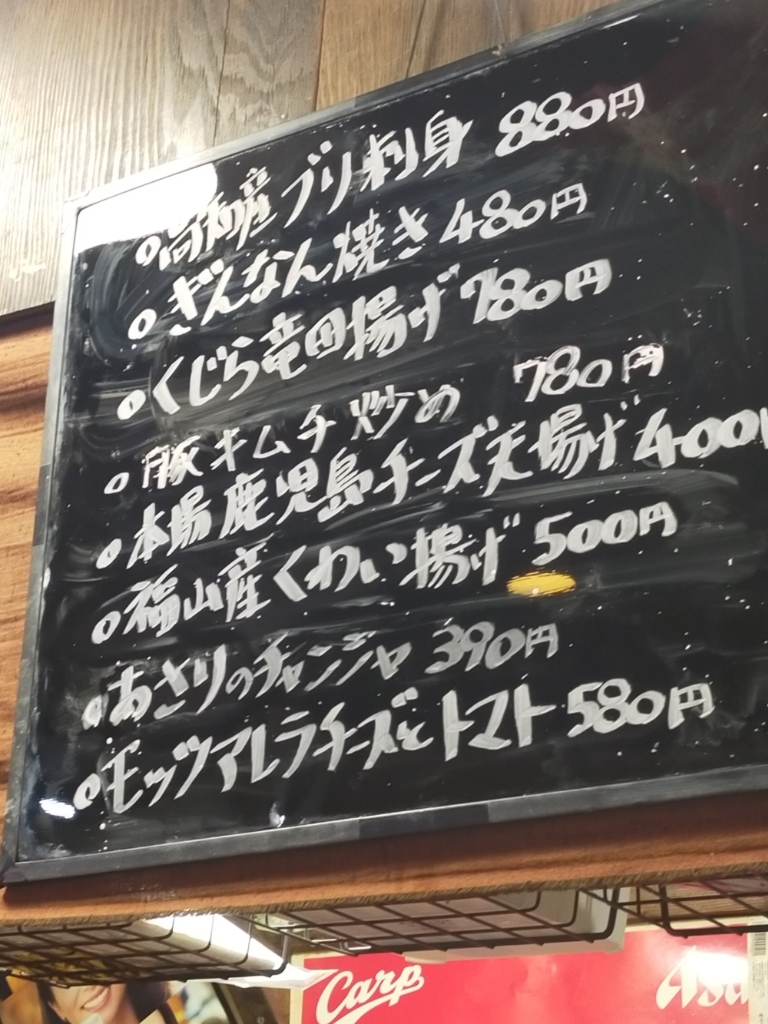 ○高知産ブリ刺身 880円
○ぎんなん焼き 480円
○くじら竜田揚げ 780円
○豚キムチ炒め 780円
○本場鹿児島チーズ天揚げ 400円
○福山産くわい揚げ 500円
○あさりのチャンジャ 390円
○モッツアレラチーズとトマト 580円
Carp